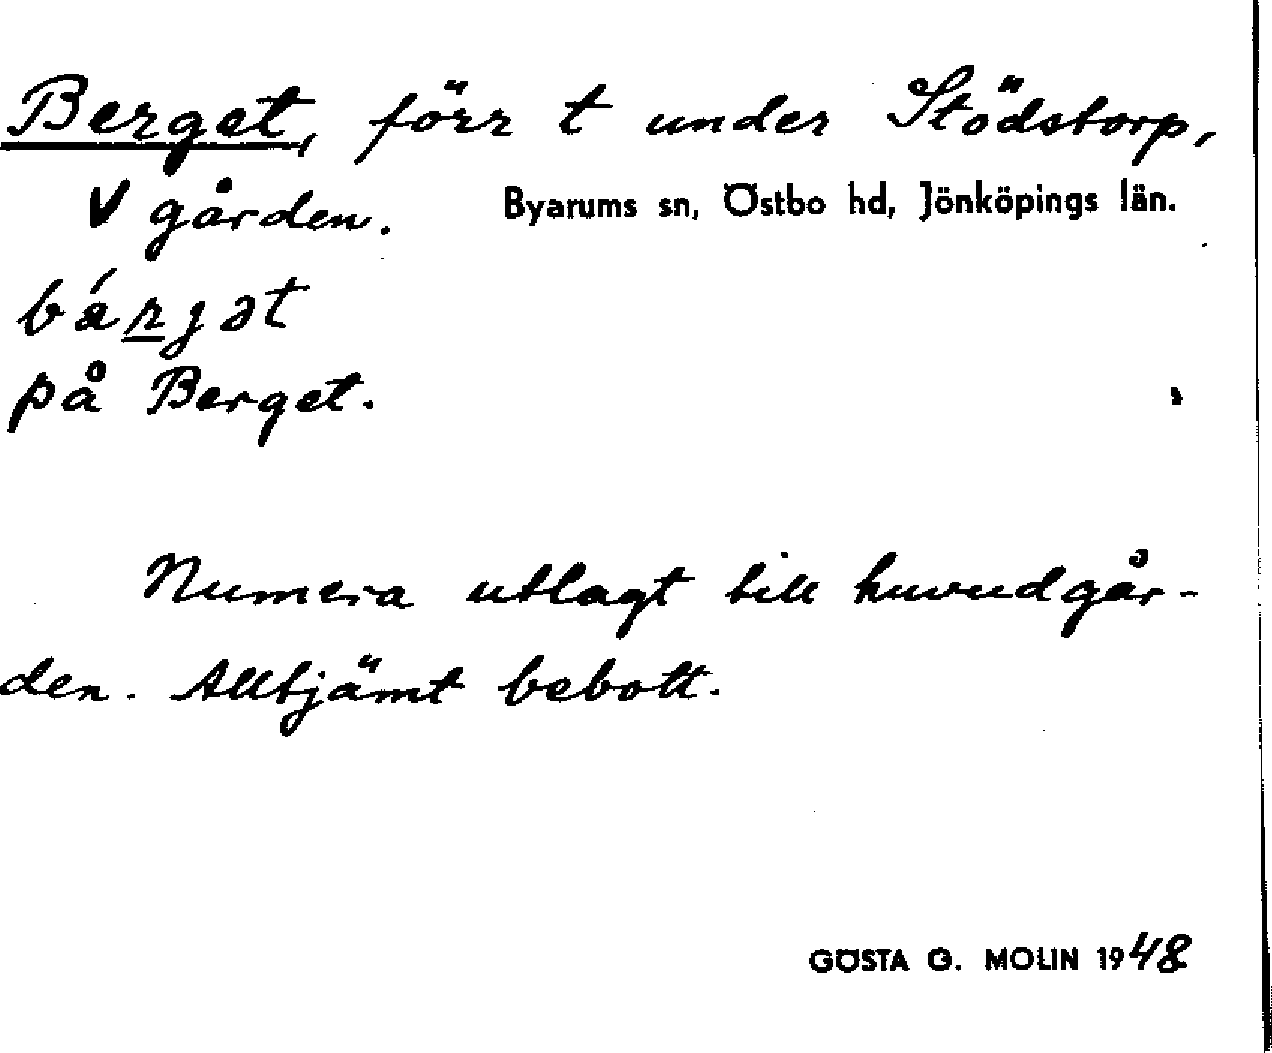 Berget, förr t under Stödstorp,
V gården. Byarums sn, Östbo hd, Jönköpings län.
bá̈rjət
på Berget.
Numera utlagt till huvudgår-
den. Alltjämt bebott.
GÖSTA G. MOLIN 1948